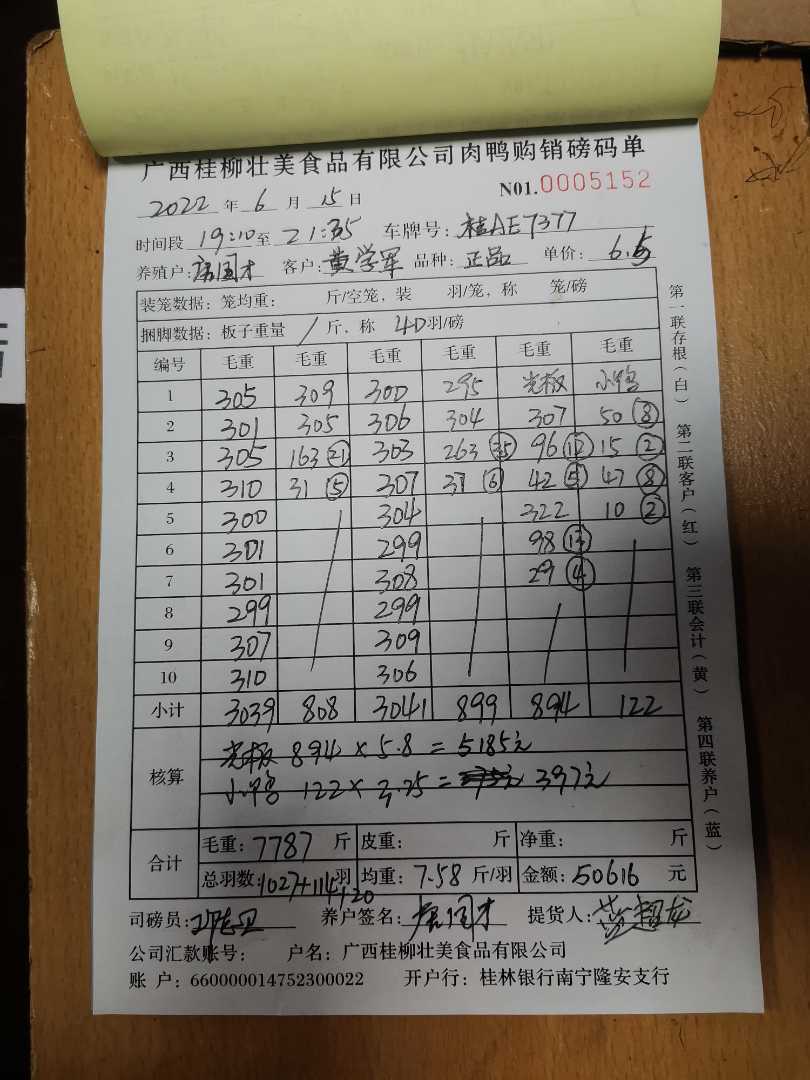 广西桂柳壮美食品有限公司肉鸭购销磅码单
N01.0005152
2022年6月15日
时间段 19:10至21:35 车牌号:桂AE7377
养殖户: 国才 客户:黄学军 品种:正品 单价:6.5
装笼数据:笼均重: 斤/空笼,装 羽/笼,称 笼/磅
捆脚数据:板子重量 / 斤,称 40羽/磅
编号 毛重 毛重 毛重 毛重 毛重 毛重
1 305 309 300 295 光板 小鸭
2 301 305 306 304 307 50 ⑧
3 305 163 ㉑ 303 263 ㉟ 96 ⑫ 15 ②
4 310 31 ⑤ 307 37 ⑥ 42 ⑤ 47 ⑧
5 300 304 322 10 ②
6 301 299 98 ⑬
7 301 308 29 ④
8 299 299
9 307 309
10 310 306
小计 3039 808 3041 899 894 122
核算
光板 894×5.8=5185元
小鸭 122×3.25= 397元
合计
毛重:7787斤 皮重: 斤 净重: 斤
总羽数:1027+114+20羽 均重:7.58斤/羽 金额:50616元
司磅员: 养户签名: 国才 提货人: 超龙
公司汇款账号: 户名:广西桂柳壮美食品有限公司
账 户:660000014752300022 开户行:桂林银行南宁隆安支行
第一联存根(白) 第二联客户(红) 第三联会计(黄) 第四联养户(蓝)